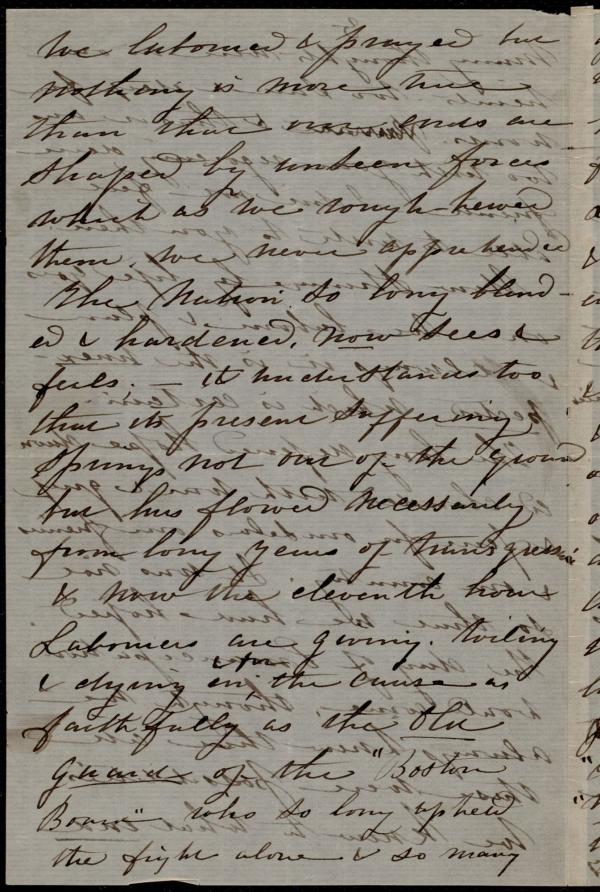 We labored & prayed but
nothing is more true
than that our ends are
shaped by unseen forces
which as we rough-hewed
them, we never apprehended
The Nation so long blind-
ed & hardened, now sees &
feels. — it understands too
that its present suffering
springs not out of the ground
but has flowed necessarily
from long years of transgression
& now the eleventh hour
Laborers are giving, toiling
& dying in & for the cause as
faithfully as the Old
Guard of the "Boston
Board" who so long upheld
the fight alone & so many